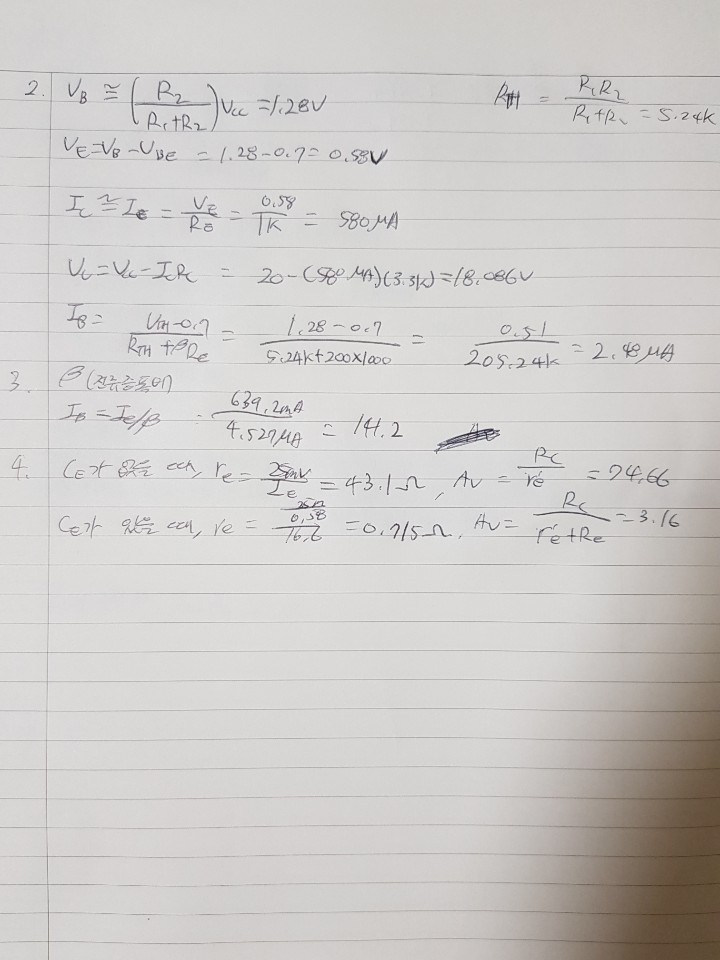 2. V_B ≅ (R_2 / (R_1+R_2)) V_cc = 1.28V    R_TH = R_1R_2 / (R_1+R_2) = 5.24K
V_E = V_B - V_BE = 1.28 - 0.7 = 0.58V
I_C ≅ I_E = V_E / R_E = 0.58 / 1K = 580μA
V_C = V_CC - I_C R_C = 20 - (580μA)(3.3k) = 18.086V
I_B = (V_TH - 0.7) / (R_TH + βR_e) = (1.28 - 0.7) / (5.24k + 200×1000) = 0.51 / 205.24k = 2.48μA
3. β (전류증폭
I_B = I_C/β = 639.2mA / 4.527μA = 141.2
4. C_E가 없을 때, r_e = 25mV / I_E = 43.1Ω, A_V = R_C / r'e = 74.66
C_E가 있을 때, r_e = 0.58 / 16.6 = 0.715Ω, A_V = R_C / (r'e + R_e) = 3.16